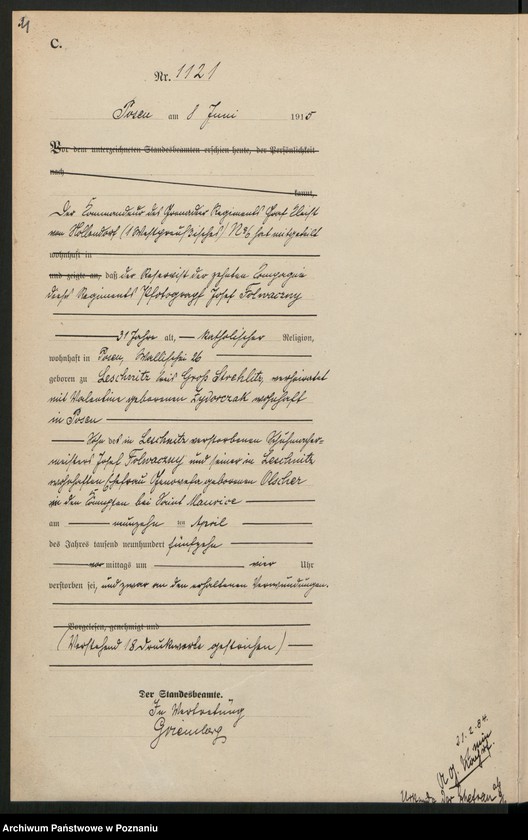 C.
Nr. 1121
Posen am 8 Juni 1915
Vor dem unterzeichneten Standesbeamten erschien heute, der Persönlichkeit
nach
kannt,
Der Kommandeur des Grenadier Regiments Graf Kleist
von Nollendorf (1 Westpreußisches) No 6 hat mitgeteilt
wohnhaft in
und zeigte an, daß der Reservist der zehnten Compagnie
dieses Regiments Photograph Josef Tolwaczny
31 Jahre alt, katholischer Religion,
wohnhaft in Posen, Wallischei 26
geboren zu Leschnitz Kreis Groß Strehlitz, verheiratet
mit Valentine geborenen Zydorczak wohnhaft
in Posen
Sohn des in Leschnitz verstorbenen Schuhmacher-
meisters Josef Tolwaczny und seiner in Leschnitz
wohnhaften Ehefrau Genovefa geborenen Olscher
in den Kämpfen bei Saint Maurice
am neunzehn ten April
des Jahres tausend neunhundert fünfzehn
vor mittags um vier Uhr
verstorben sei, und zwar an den erhaltenen Verwundungen.
Vorgelesen, genehmigt und
(Vorstehend 18 Druckworte gestrichen)
Der Standesbeamte.
In Vertretung
21. 2. 34.
Archiwum Państwowe w Poznaniu